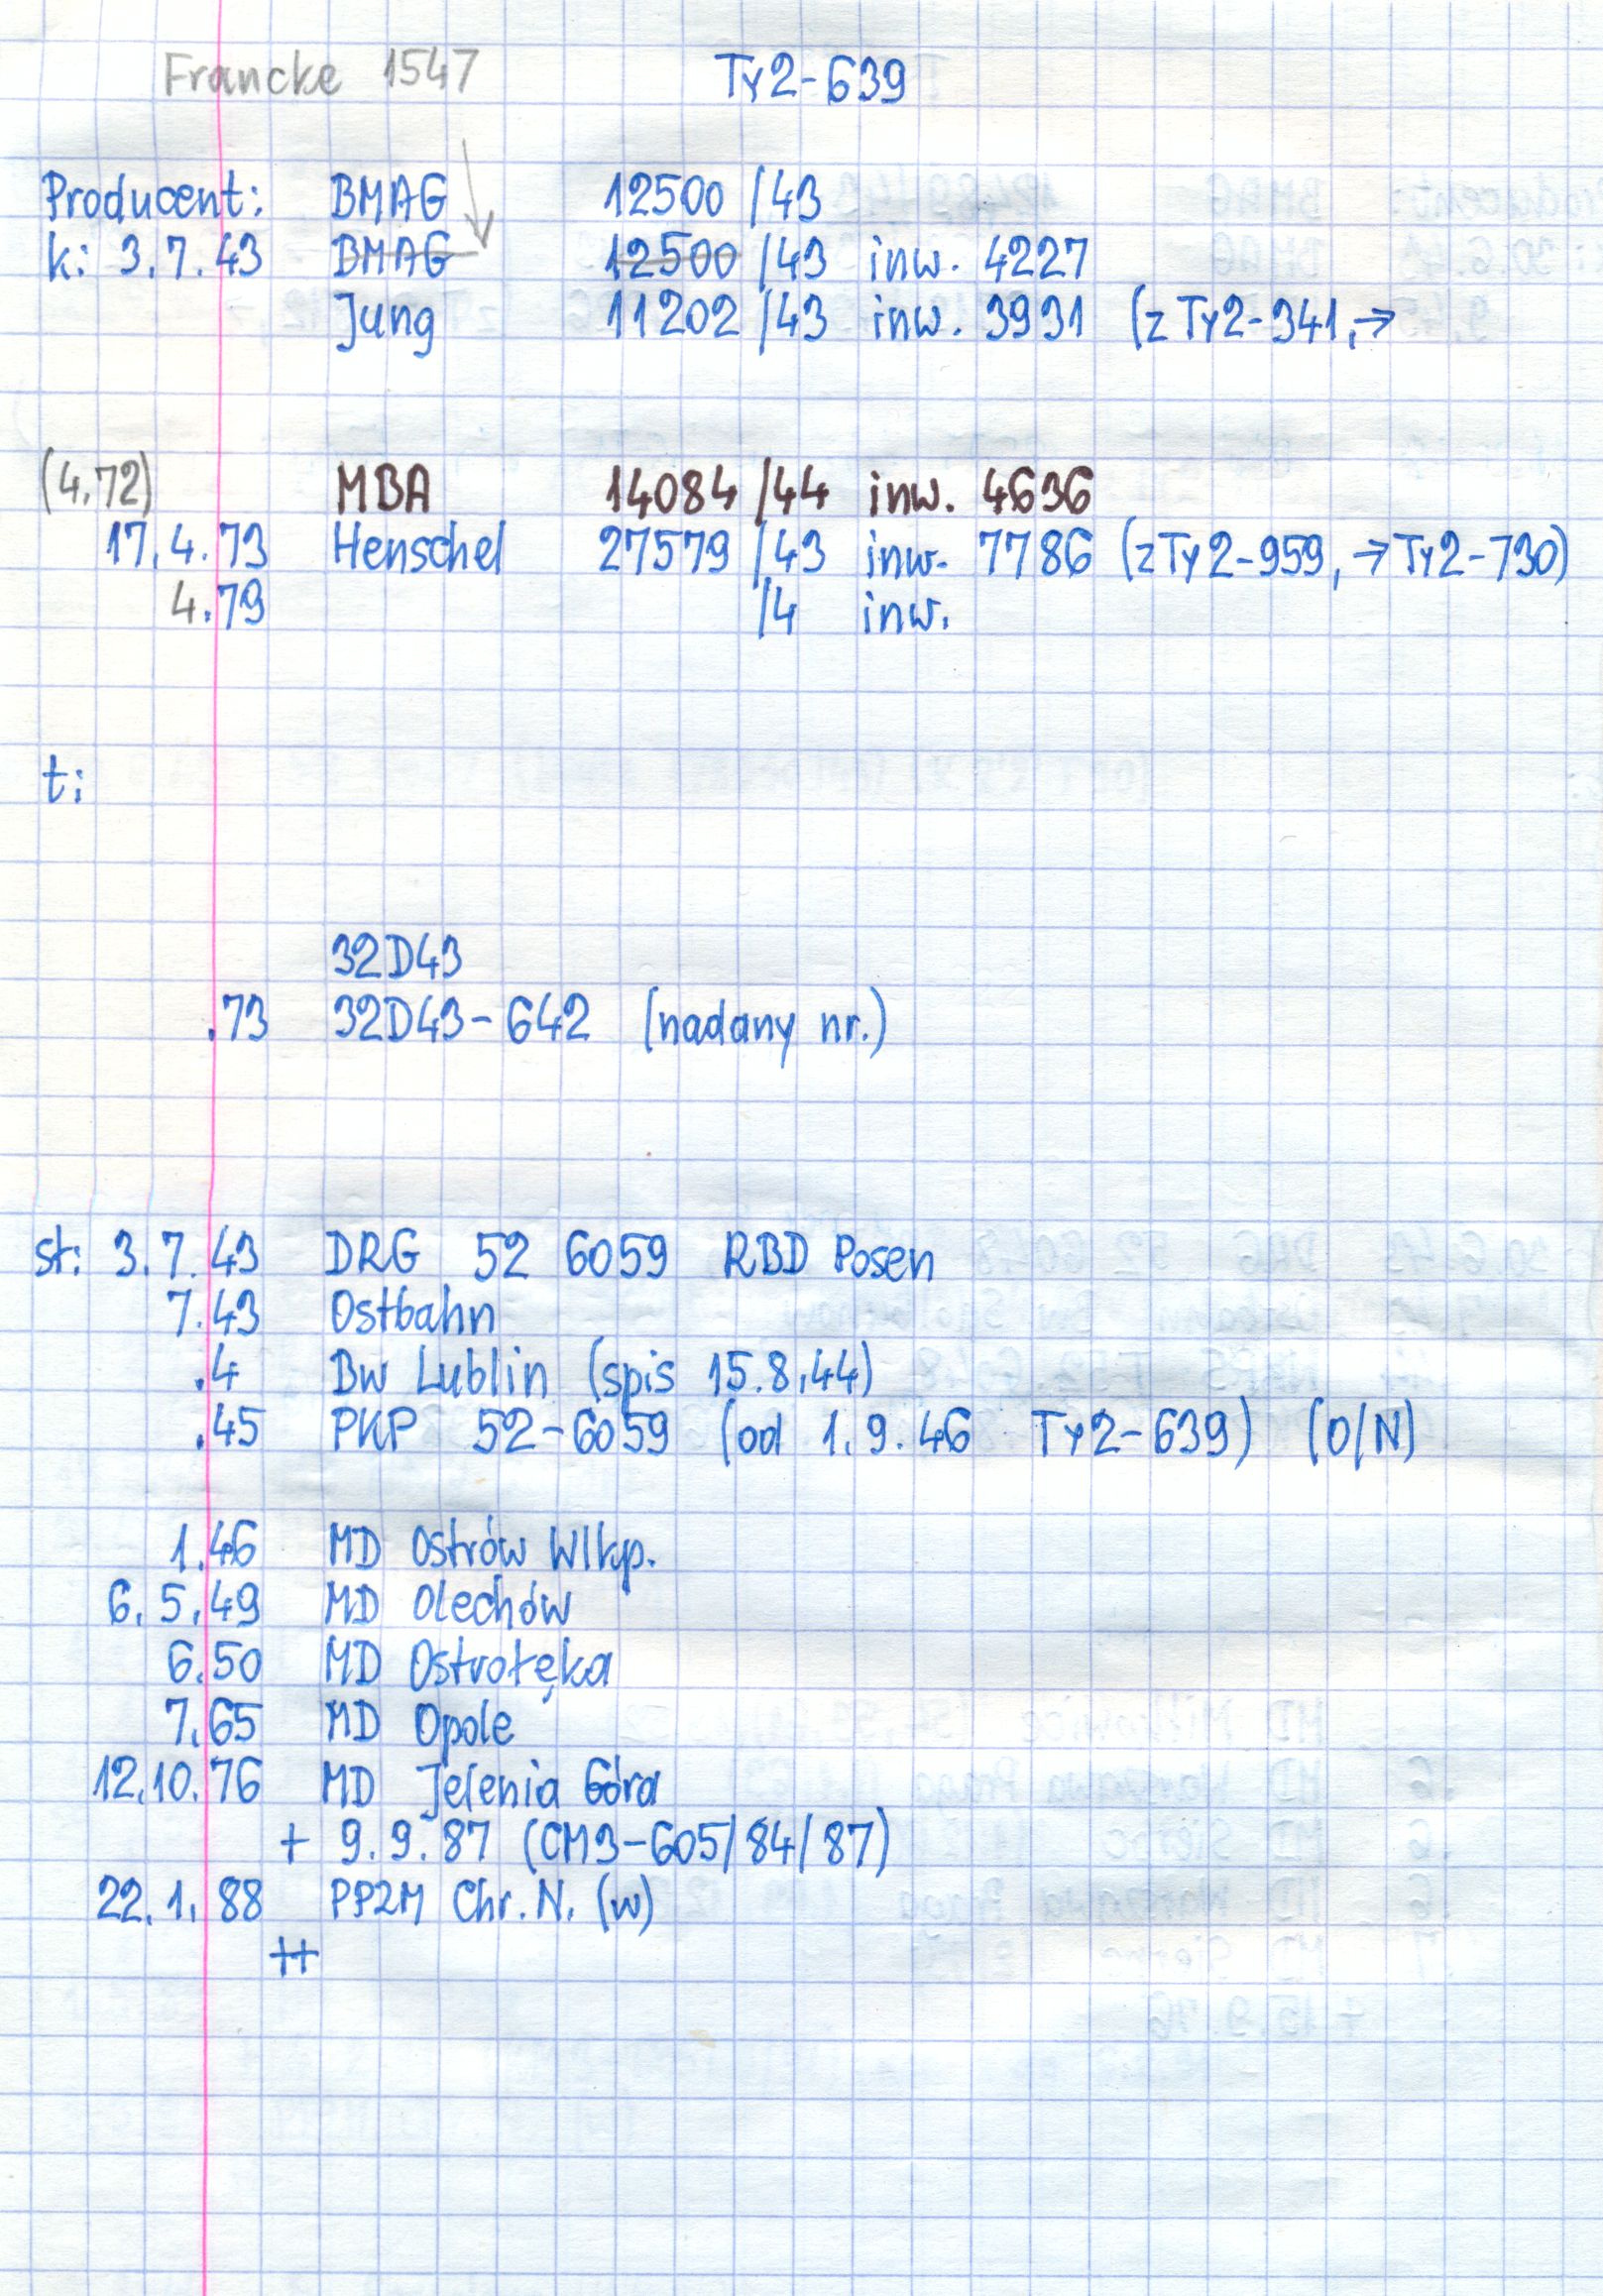 Francke 1547 Ty2-639
Producent: BMAG 12500 /43
k: 3.7.43 BMAG 12500 /43 inw. 4227
Jung 11202 /43 inw. 3931 (z Ty2-341, →
(4.72) MBA 14084 /44 inw. 4636
17.4.73 Henschel 27579 /43 inw. 7786 (z Ty2-959, → Ty2-730)
4.79 /4 inw.
t:
32D43
.73 32D43-642 (nadany nr.)
st: 3.7.43 DRG 52 6059 RBD Posen
7.43 Ostbahn
.4 Bw Lublin (spis 15.8.44)
.45 PKP 52-6059 (od 1.9.46 Ty2-639) (O/N)
1.46 MD Ostrów Wlkp.
6.5.49 MD Olechów
6.50 MD Ostrołęka
7.65 MD Opole
12.10.76 MD Jelenia Góra
+ 9.9.87 (CM3-605/84/87)
22.1.88 PPZM Chr. N. (w)
++